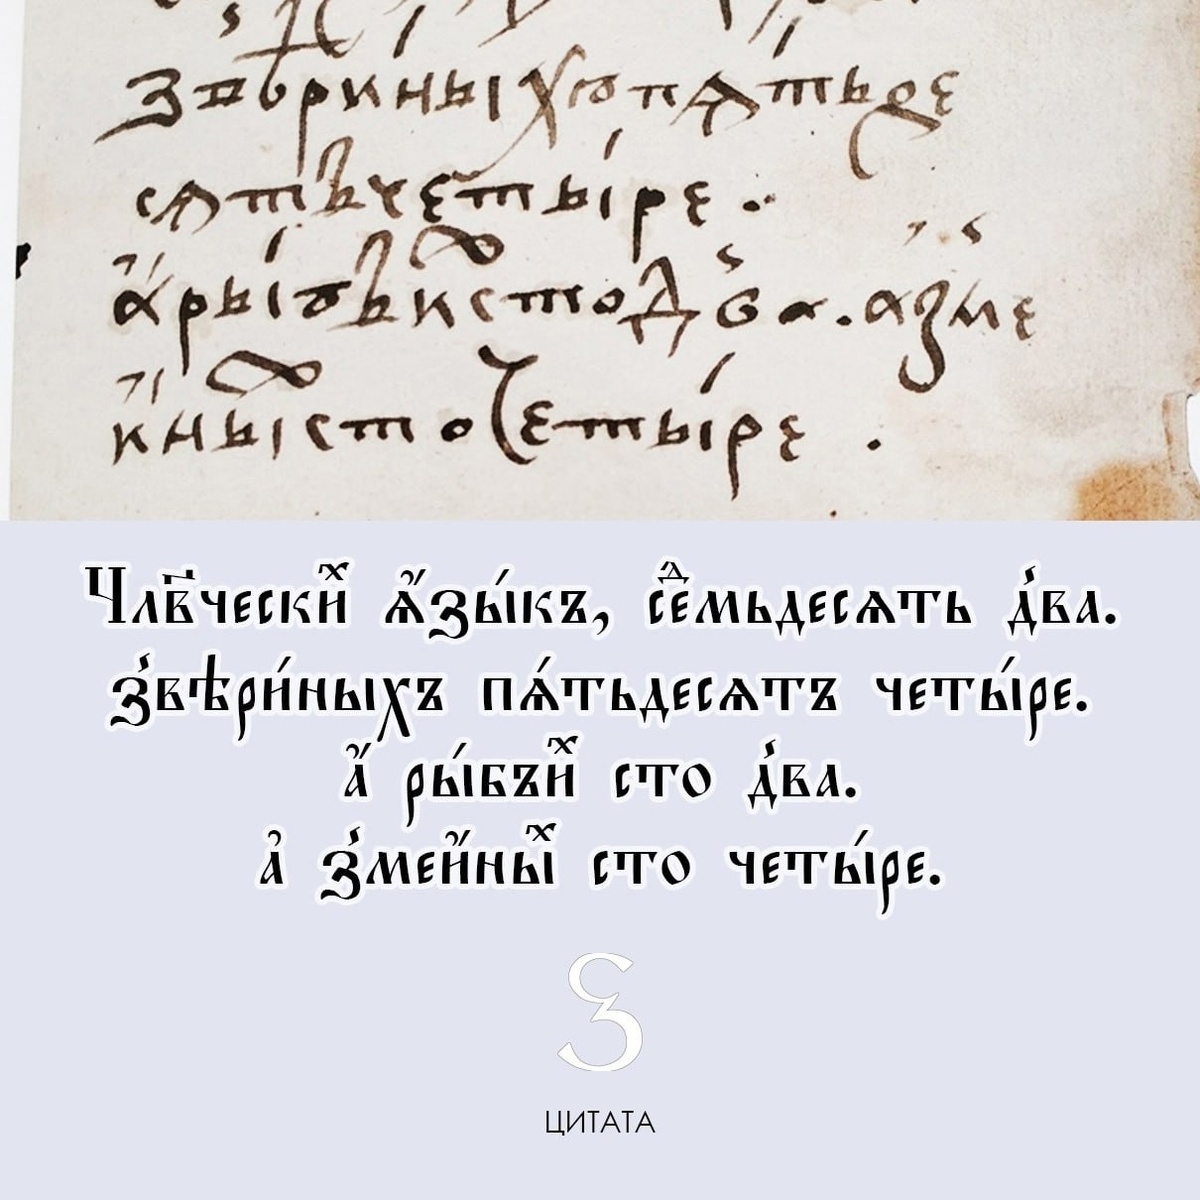 звѣриныхъ пѧтьде
сѧтъ четы́ре.
а҆́ ры́бъиⷯ сто два̀. а҆ зме
и҆ныⷯ сто четы́ре.
Члв҃ческиⷯ҆ ѧ҆́зы́къ, сеⷣмьдесѧть два.
звѣри́ныхъ пѧ́тьдесѧтъ четы́ре.
а҆́ ры́бъиⷯ҆ сто два.
а҆ змей҆ныⷯ сто четы́ре.
З
ЦИТАТА